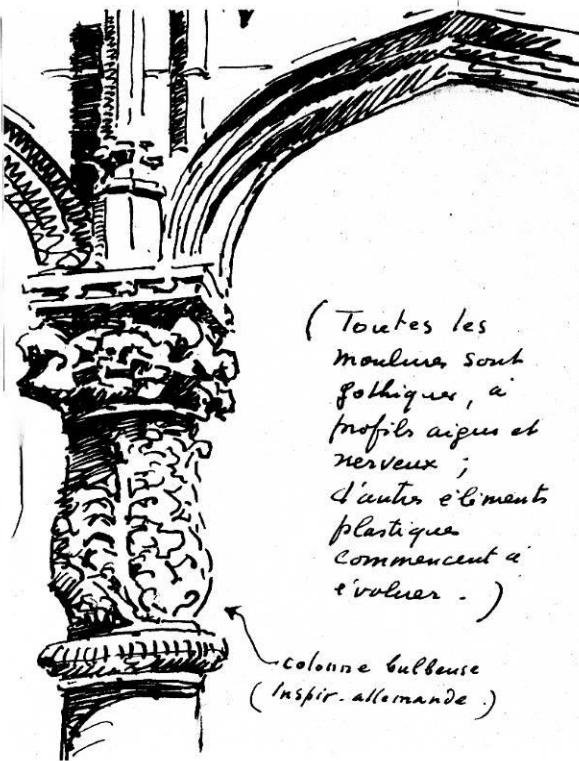 (Toutes les
moulures sont
gothiques, à
profils aigus et
nerveux ;
d'autres éléments
plastiques
commencent à
évoluer.)
colonne bulbeuse
(Inspir. allemande.)